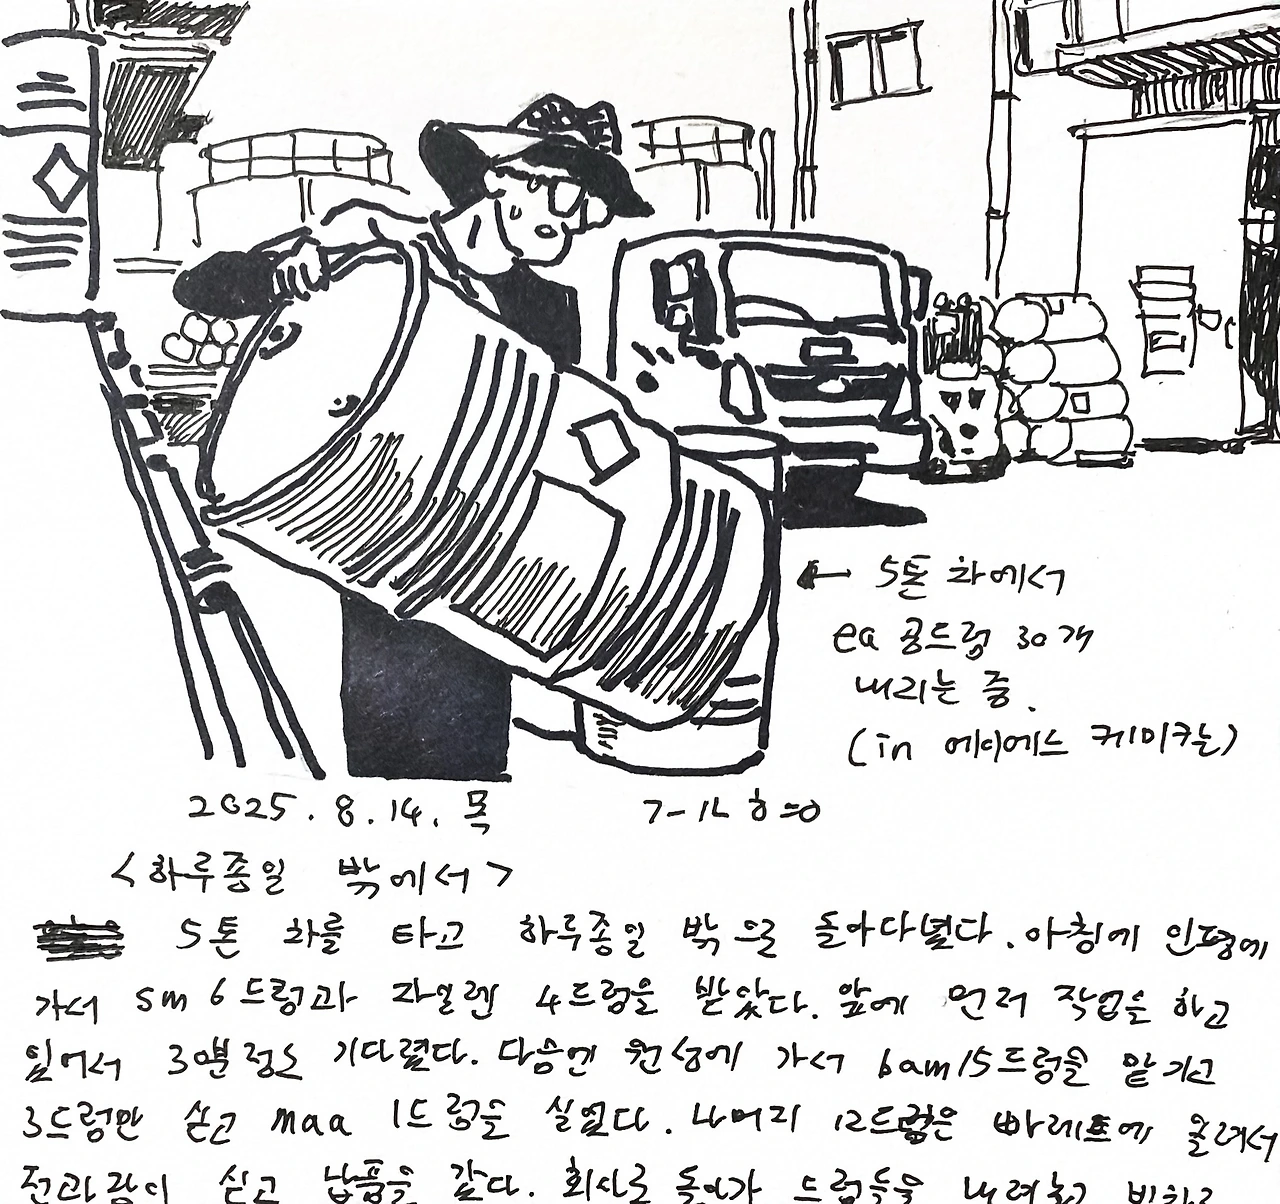 ← 5톤 차에서
ea 공드럼 30개
내리는 중.
(in 에이에스 케미칼)
2025. 8. 14. 목
<하루종일 밖에서>
5톤 차를 타고 하루종일 밖을 돌아다녔다. 아침에 인평에
가서 sm 6드럼과 자일렌 4드럼을 받았다. 앞에 먼저 작업을 하고
있어서 3분정도 기다렸다. 다음엔 원성에 가서 bam 15드럼을 맡기고
3드럼만 싣고 maa 1드럼을 실었다. 나머지 12드럼은 빠레트에 올려서
싣고 납품을 갔다. 회사로 돌아가 드럼들을 내려놓고